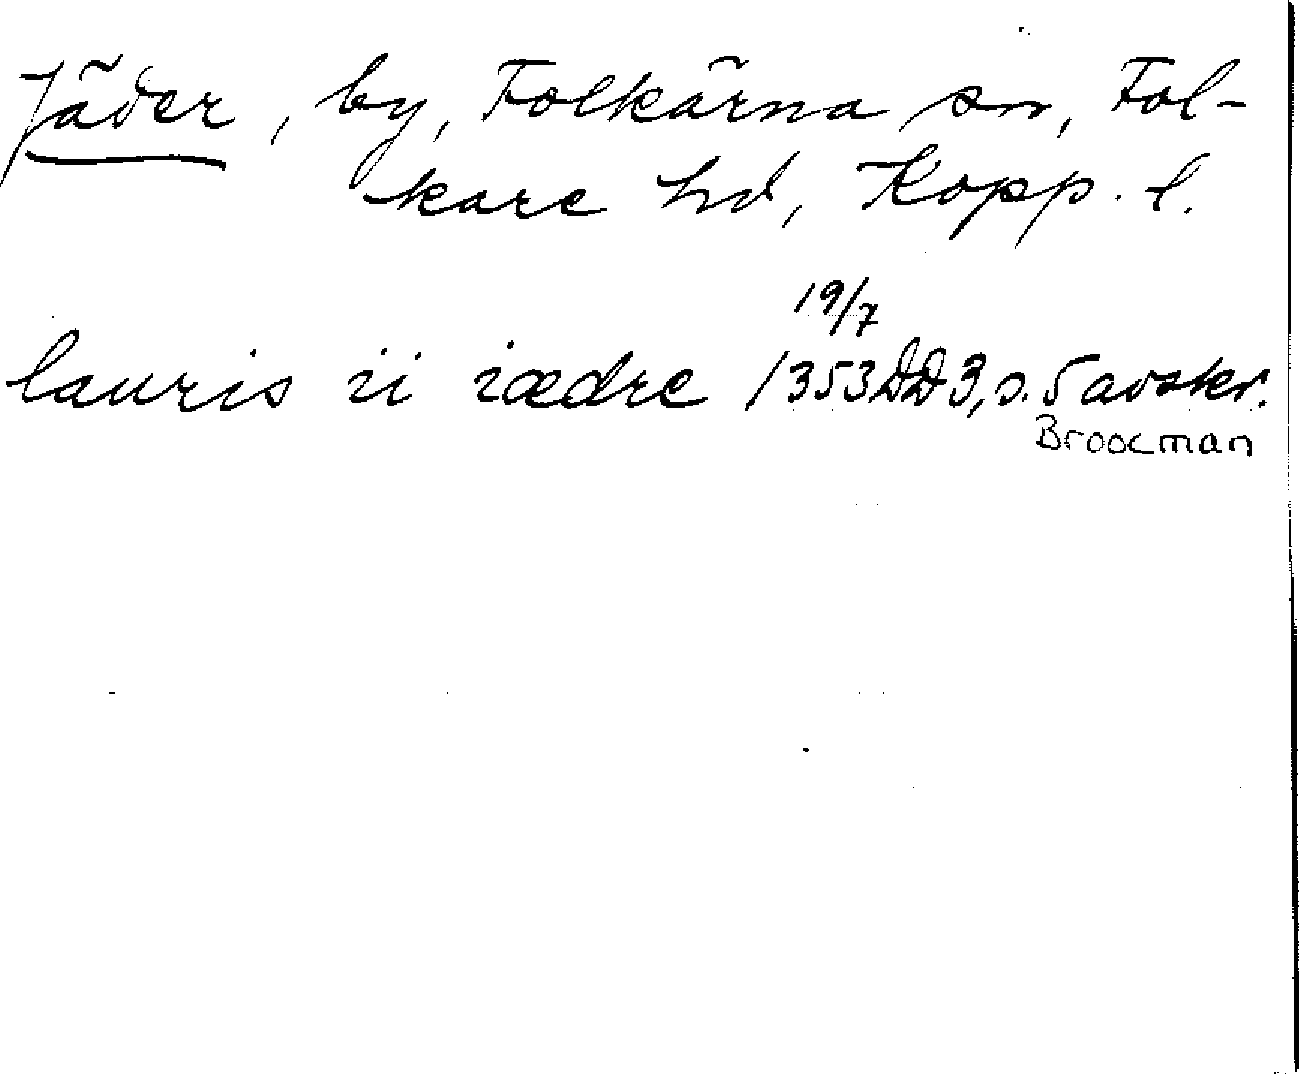 Jäder, by, Folkärna sn, Fol-
kare hd, Kopp. l.
19/7
lauris ii iædre 1353 DD 3, s. 5 avskr.
Broocman